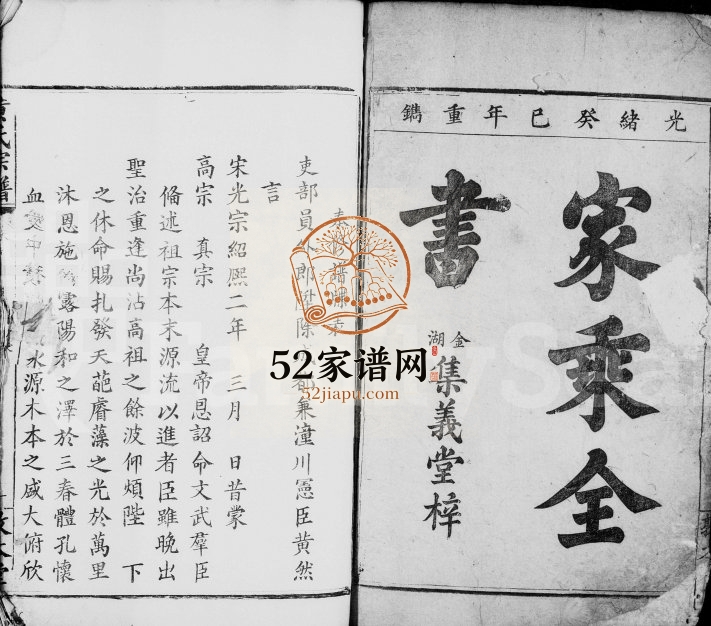 光緒癸巳年重鐫
家乘全
書
金湖
集義堂梓
吏部員外郎
兼潼川憲臣黄然
言
宋光宗紹熙二年 三月 日昔蒙
高宗 真宗 皇帝恩詔命文武羣臣
俻述祖宗本末源流以進者臣雖晚出
聖治重逢尚沾高祖之餘波仰煩陛 下
之休命賜扎發天葩睿藻之光於萬里
沐恩施 露陽和之澤於三春體孔懷
血 水源木本之感大俯欣
氏宗譜
52家谱网
52jiapu.com